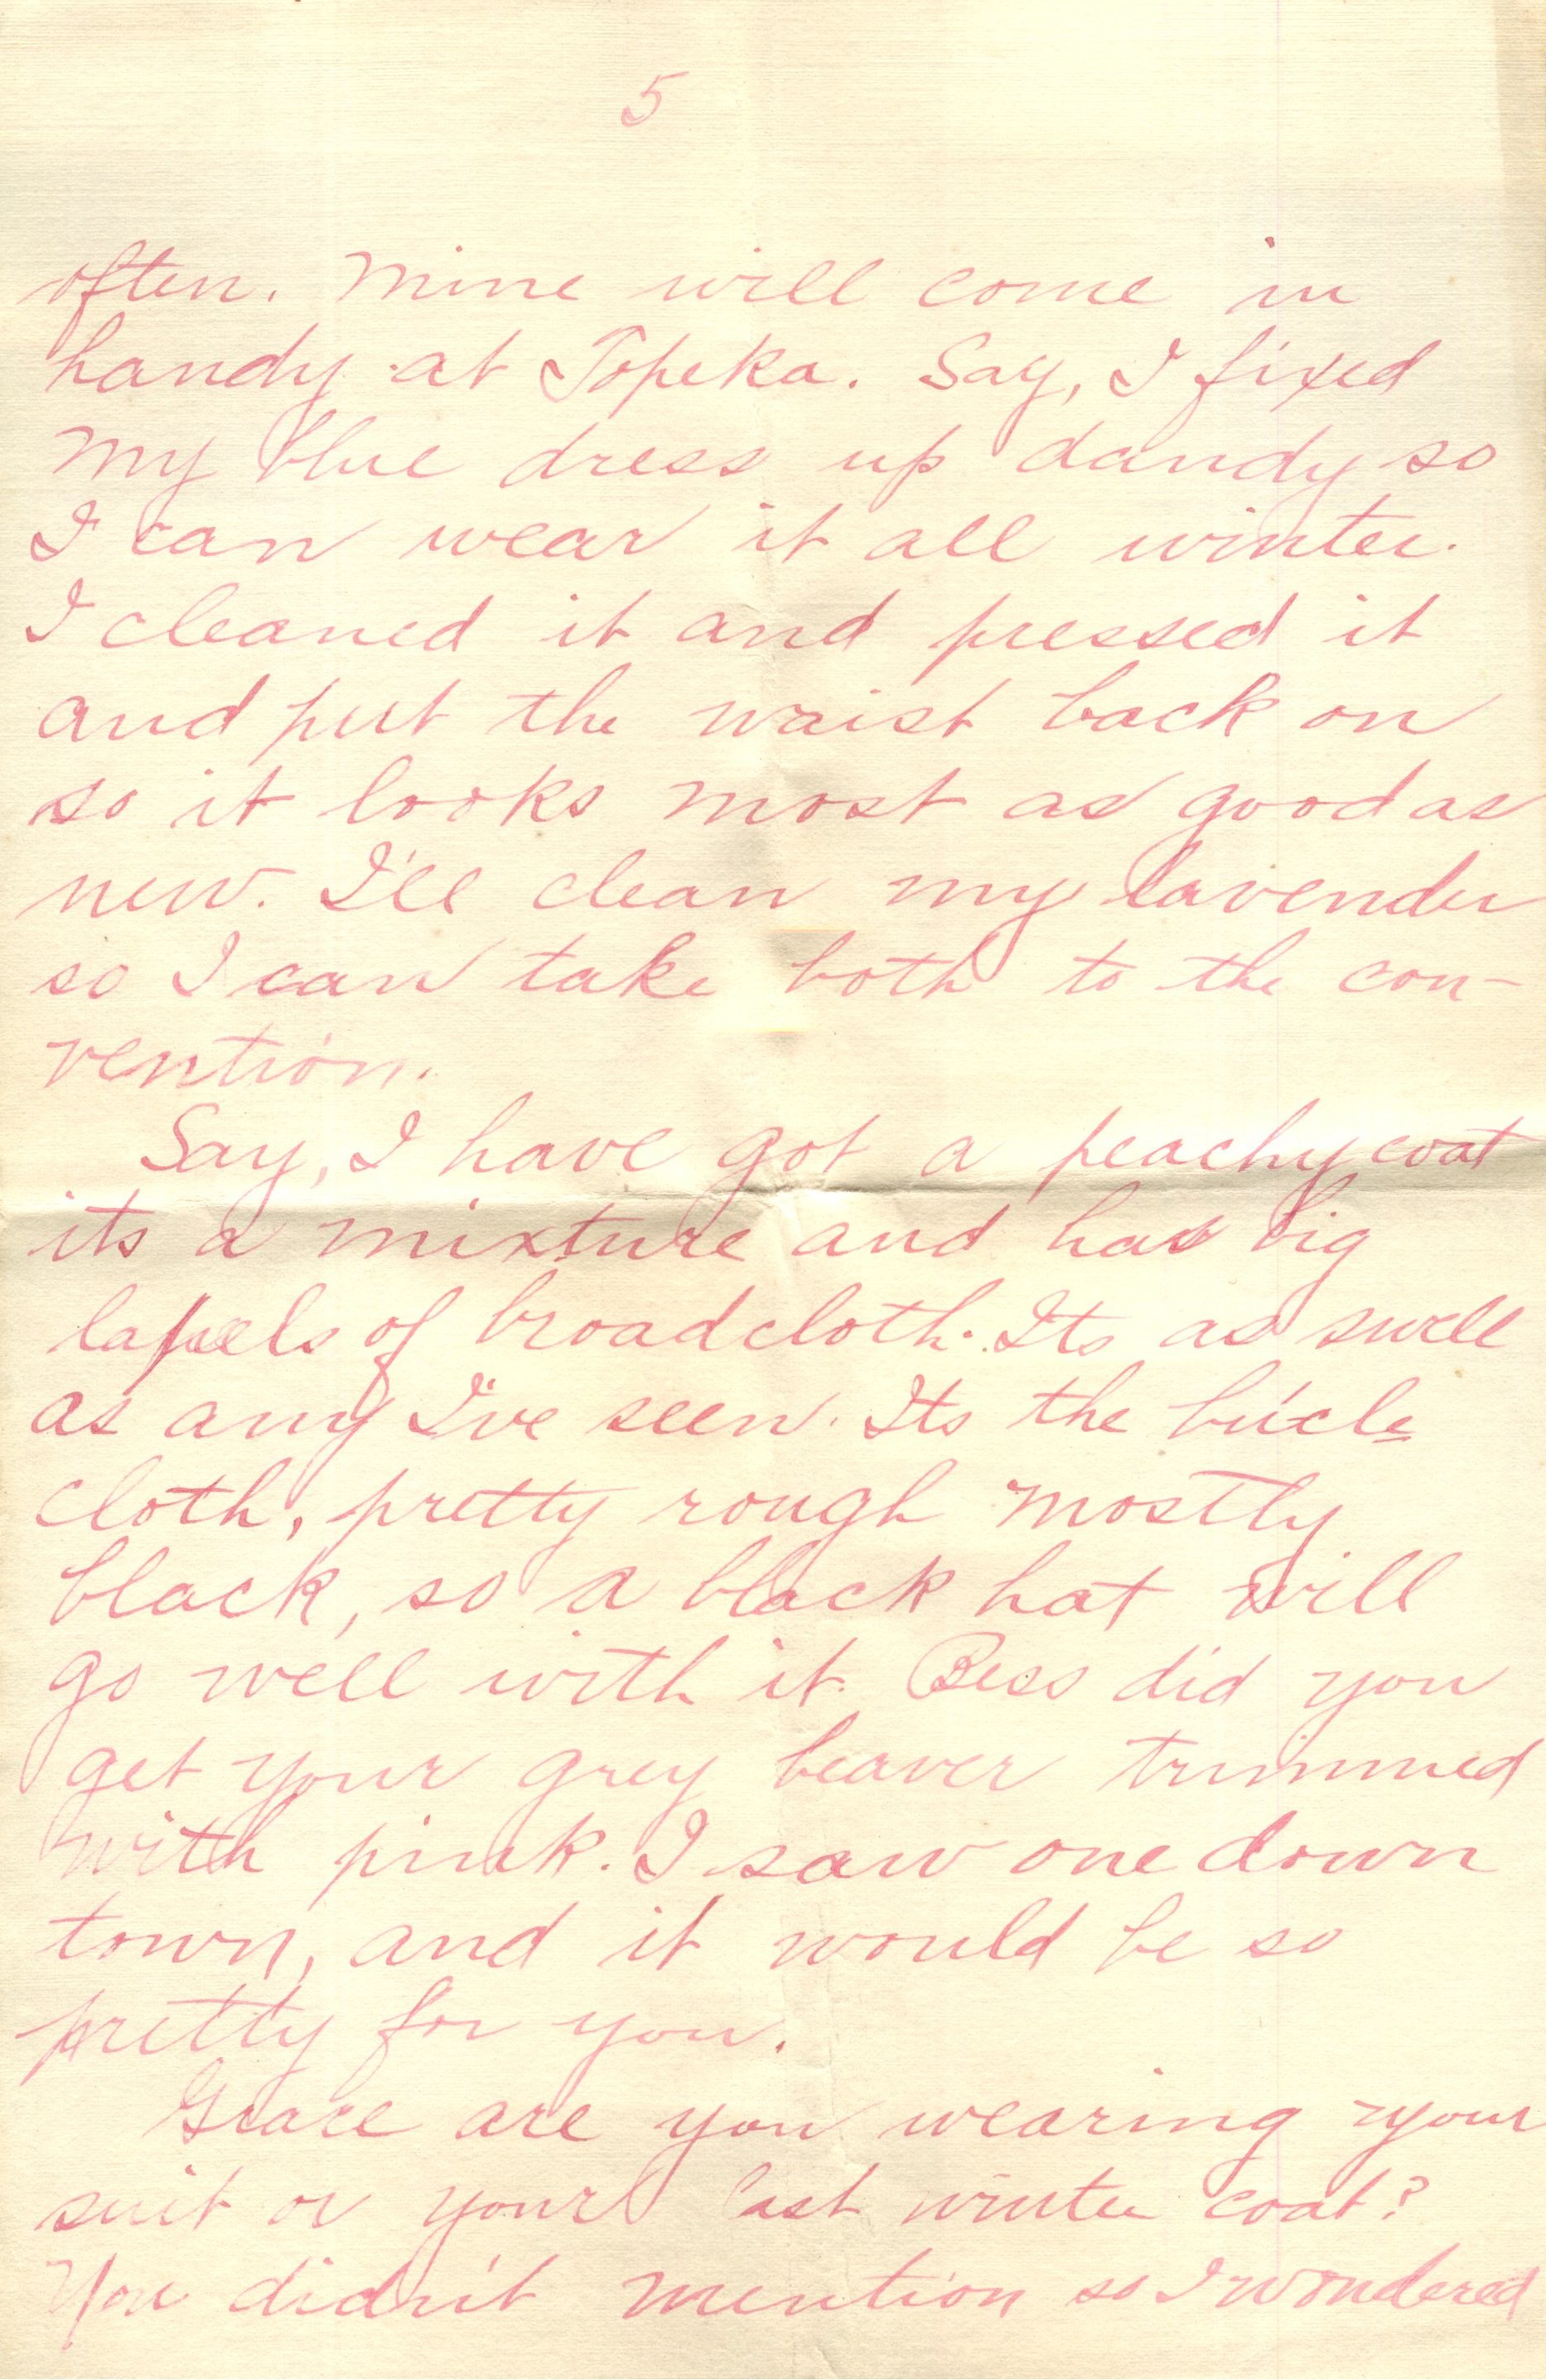 5
often. Mine will come in
handy at Topeka. Say, I fixed
my blue dress up dandy so
I can wear it all winter.
I cleaned it and pressed it
and put the waist back on
so it looks most as good as
new. I'll clean my lavender
so I can take both to the con-
vention.
Say, I have got a peachy coat
its a mixture and has big
lapels of broadcloth. Its as swell
as any I've seen. Its the bucle
cloth, pretty rough mostly
black, so a black hat will
go well with it. Bess did you
get your grey beaver trimmed
with pink. I saw one down
town, and it would be so
pretty for you.
Grace are you wearing your
suit or your last winter coat?
You didn't mention so I wondered